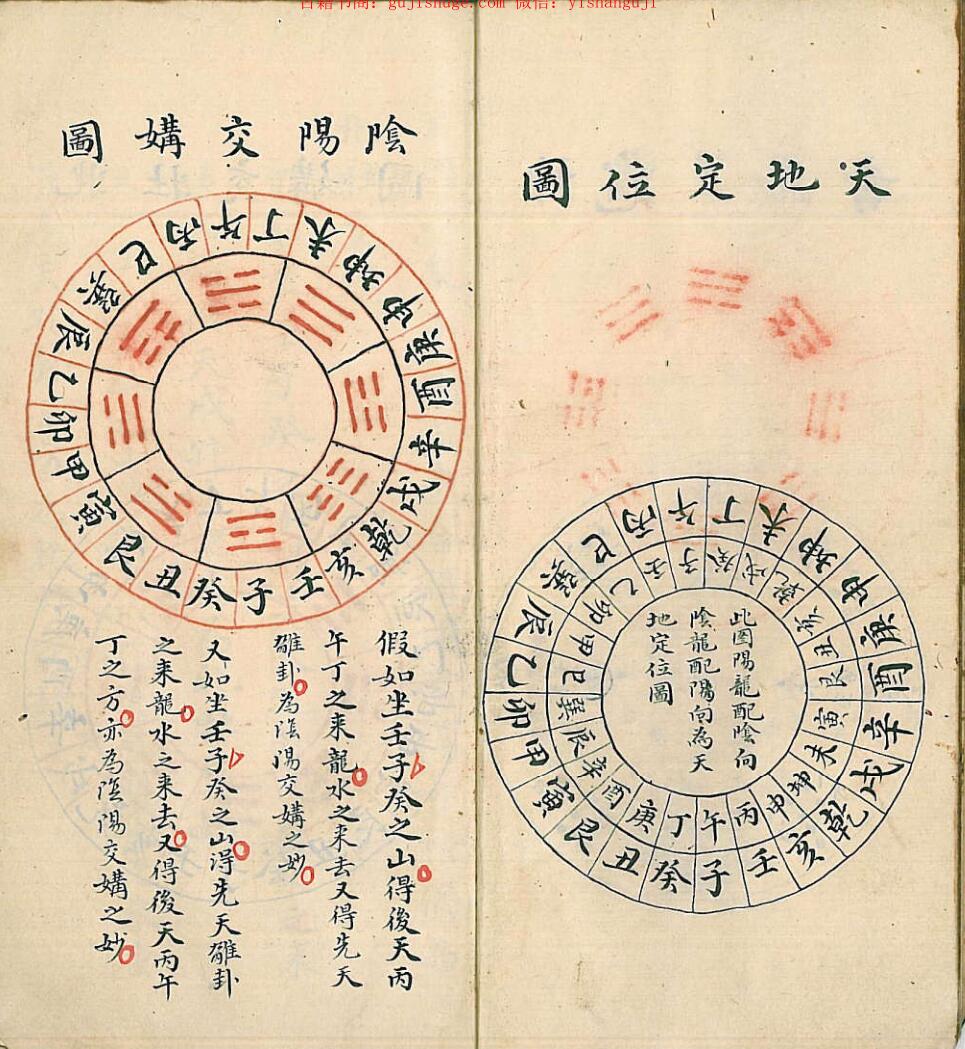 古籍书阁：gujishuge.com 微信：yishanguji
天地定位圖
午丁未坤申庚酉辛戌乾亥壬子癸丑艮寅甲卯乙辰巽巳丙
子癸戌乾亥丑艮寅未坤申丙午丁庚酉辛辰巽巳甲卯乙壬
此图陽龍配陰向
陰龍配陽向為天
地定位圖
陰陽交媾圖
午丁未坤申庚酉辛戌乾亥壬子癸丑艮寅甲卯乙辰巽巳丙
假如坐壬子癸之山得後天丙
午丁之来龍水之来去又得先天
離卦為陰陽交媾之妙
又如坐壬子癸之山得先天離卦
之来龍水之来去又得後天丙午
丁之方亦為陰陽交媾之妙